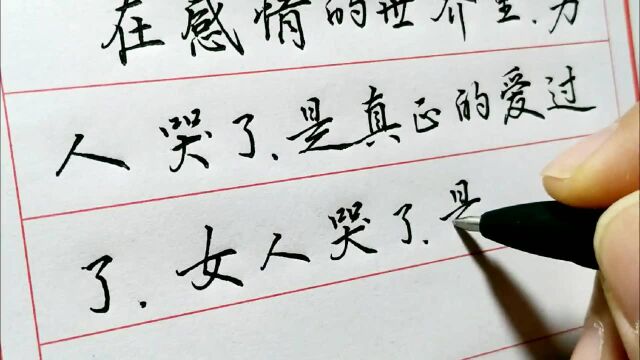 在感情的世界里.男
人哭了.是真正的爱过
了.女人哭了.是